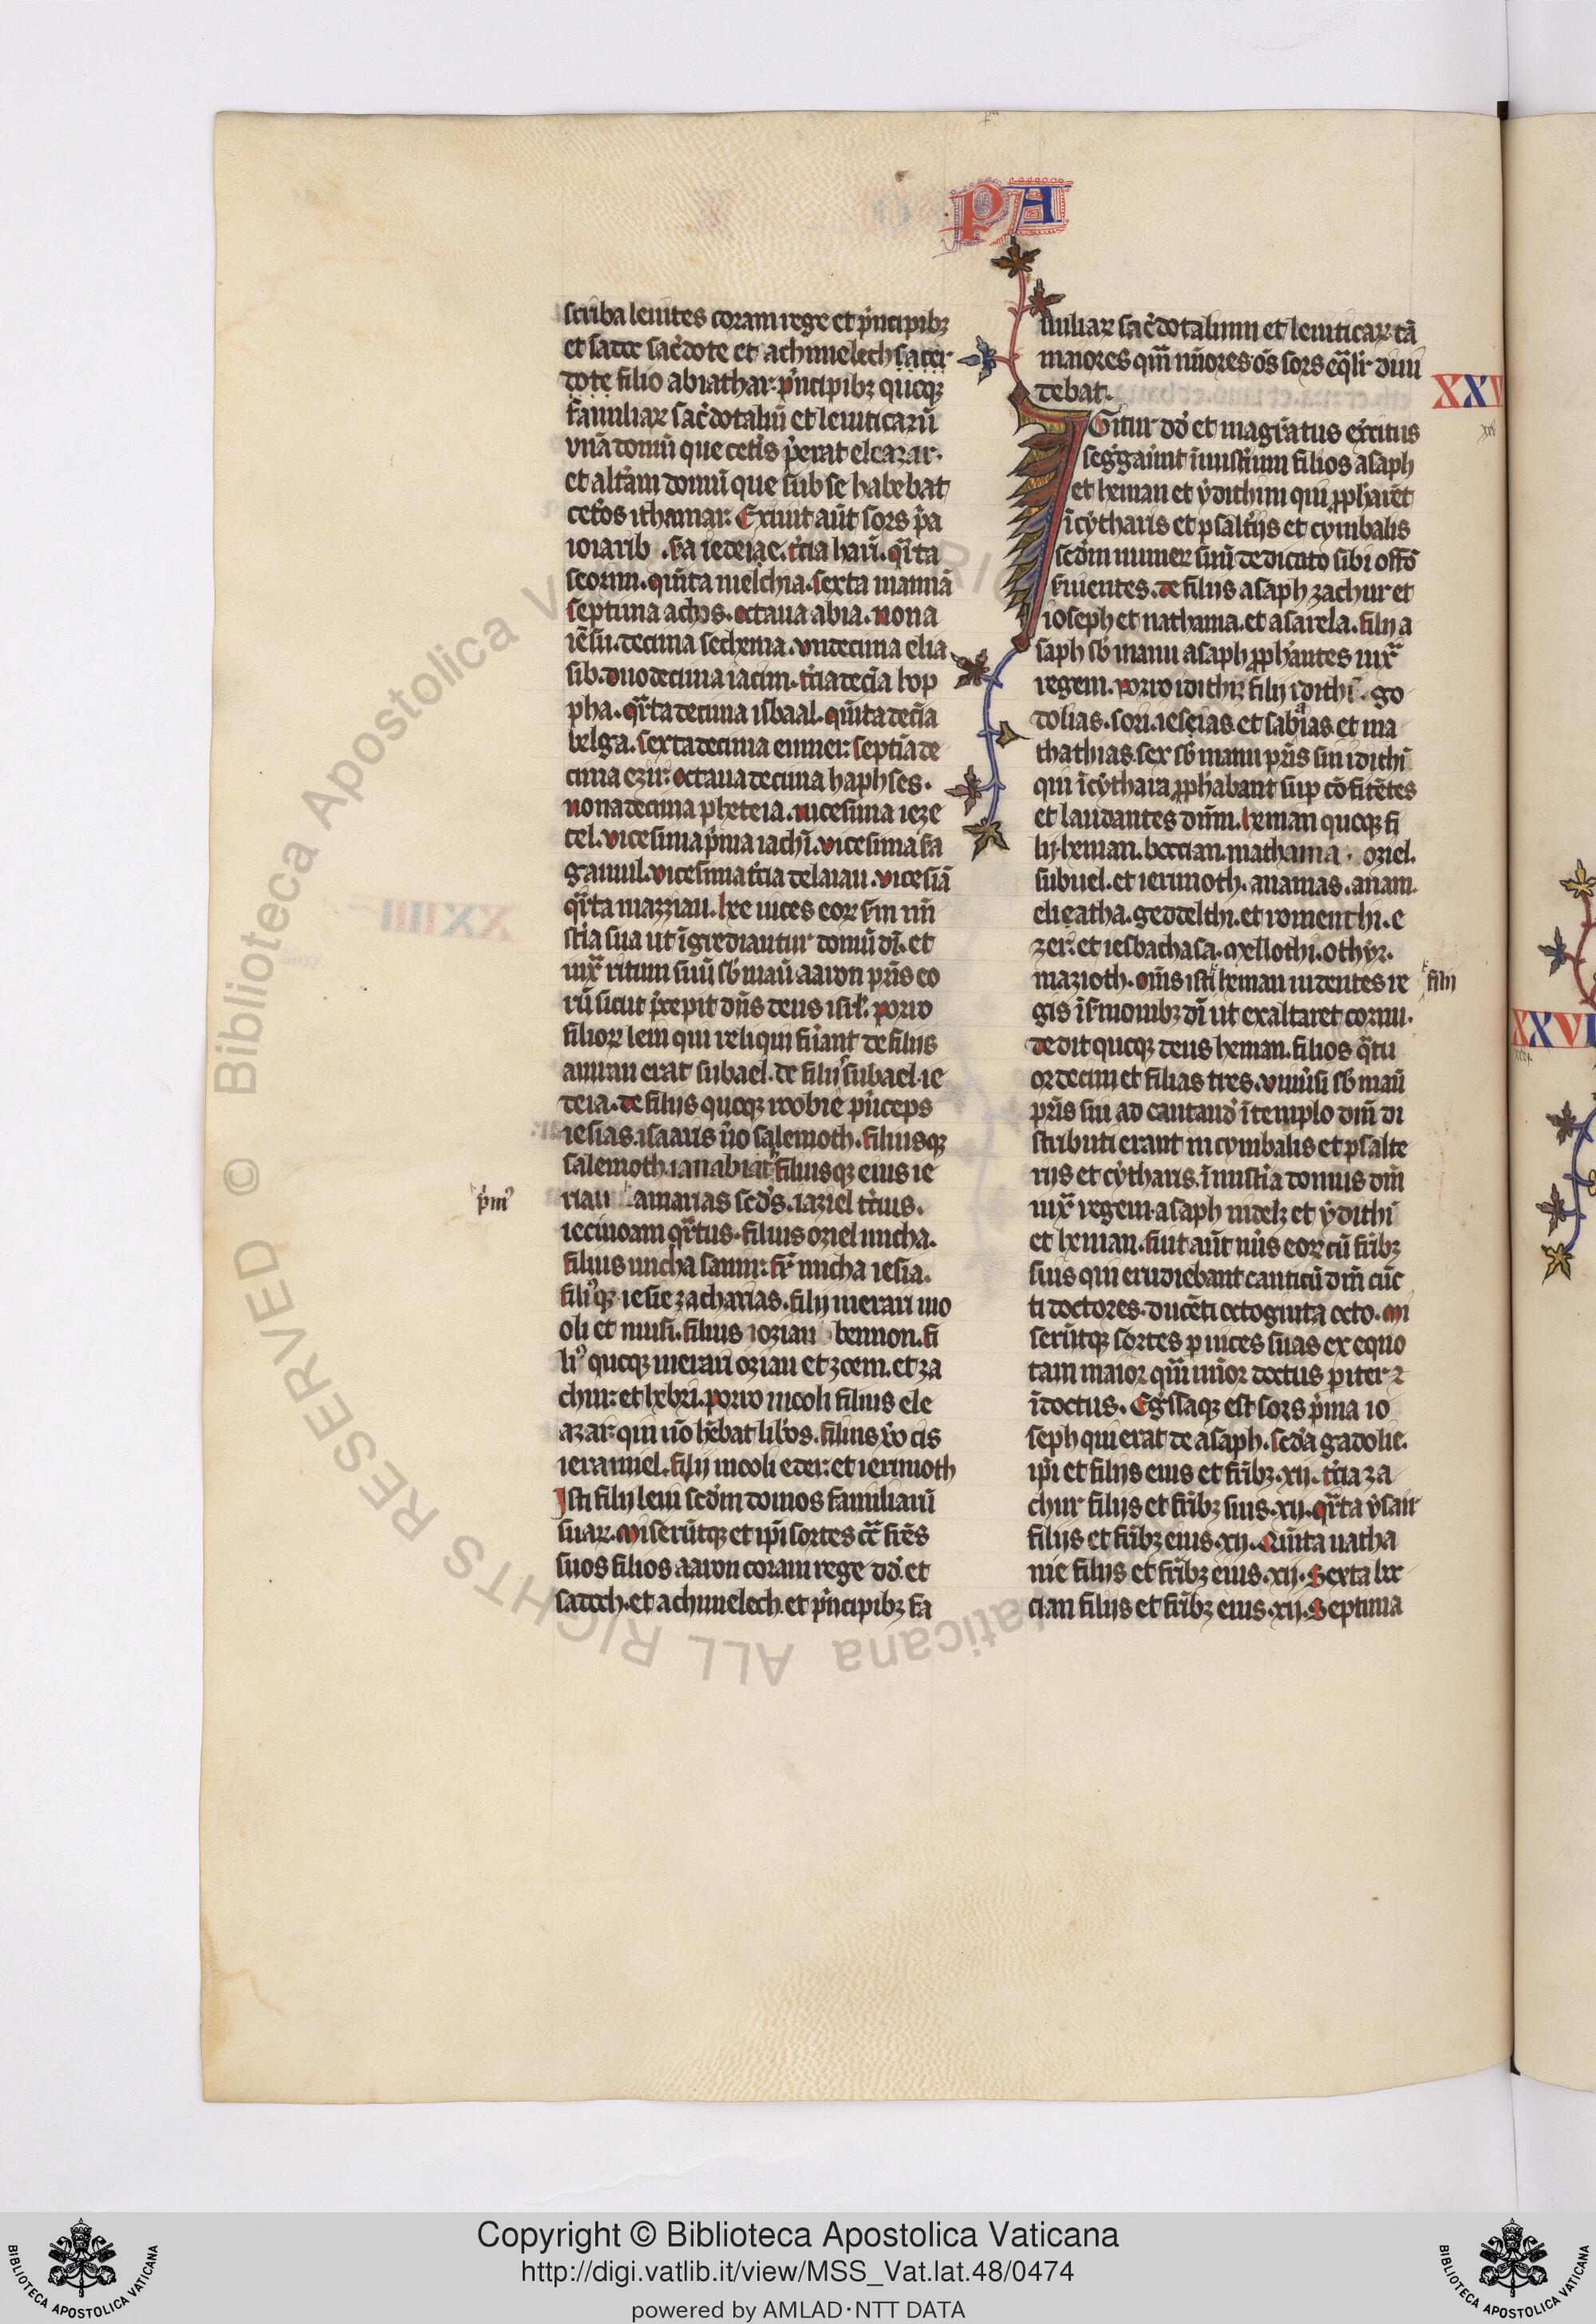 PA
scriba leuites coram rege et p̓ncipibꝫ
et sadoc sac̓dote et achimelech sacer
dote filio abiathar. p̓ncipibꝫ quoqꝫ
familiaꝝ sac̓dotaliū et leuiticarū
vnā domū que cet̓is p̓erat eleazar.
et alt̓am domū que sub se habebat
cet̓os ithamar. Exiuit aūt sors p̓a
ioiarib. s̓a iedeiae. t̓cia harī. qᵃrta
seorim. qͥnta melchia. sexta mainā
septima achos. octaua abia. nona
iēsu. decima sechenia. vndecima elia
sib. duodecima iacim. t̓cia decīa hop
pha. qᵃrtadecima isbaal. qͥntadecīa
belga. sextadecima emmer. septīa de
cima ezir. octauadecima haphses.
nonadecima pheteia. uicesima ieze
cel. vicesima p̓ma iachī. vicesima s̓a
gamul. vicesima t̓cia delaiau. vicesiā
qᵃrta mazziau. hee uices eoꝝ s̄m mī
st̓ia sua ut īgrediantur domū dī. et
iuxᵃ ritum suū sb̓ manū aaron pr̄is eo
rū sicut p̓cepit dn̄s deus isrl̓. porro
filioꝝ leui qui reliqui fu̓ant de filiis
amran erat subael. de filiis subael ie
deia. de filiis quoqꝫ roobie p̓nceps
iesias. isaaris u̓o salemoth. filiusqꝫ
salemoth ianabiath filiusqꝫ eius ie
p̓mꝰ
riau amarias scd̓s. iaziel t̓cius.
iecmoam qᵃrtus. filius oziel micha.
filius micha samir. fr̄ micha iesia.
filiꝰqꝫ iesie zacharias. filij merari mo
oli et musi. filius ioziau bennon. fi
liꝰ quoqꝫ merari oziau et zoem. et za
chur. et hebri. porro mooli filius ele
azar. qui nō hēbat lib̓os. filius u̓o cis
ieramuel. filij mooli eder. et ierimoth
Isti filij leui scd̄m domos familiarū
suaꝝ. miserūtqꝫ et ip̄i sortes cōᵃ frēs
suos filios aaron coram rege dd̓. et
sadoch. et achimelech. et p̓ncipibꝫ fa
miliaꝝ sac̓dotalium et leuiticaꝝ. tā
maiores qᵃm mīores ōs sors eq̄lit̓ diui
debat.
XXV
xxv
IGitur dd̓ et magr̄atus exc̓itus
seg̓gauunt ī mist̓ium filios asaph
et heman et ẏdithim qui ꝓphar̄et
ī cẏtharis et psalt̓ijs et cymbalis
scd̄m numeꝝ suū dedicato sibi offō
s̓uientes. de filiis asaph zachur et
ioseph et nathama. et asarela. filij a
saph sb̓ manu asaph ꝓphantes iuxᵃ
regem. porro idithī filij idithī. go
dolias. sori. ieseias. et sabias. et ma
thathias. sex sb̓ manu pr̄is sui idithī
qui ī cẏthara ꝓphabant sup̄ cōfitētes
et laudantes dn̄m. heman quoqꝫ fi
lij heman. boccian. mathama. oziel.
subuel. et ierimoth. ananias. anam.
elieatha. geddelthi. et romenthi. e
zer. et iesbachasa. mellothi. othyr.
mazioth. om̄s isti heman uidentes re
filij
gis ī s̓monibꝫ dī ut exaltaret cornu.
dedit quoqꝫ deus heman. filios qᵃtu
ordecim et filias tres. vniūsi sb̓ manū
pr̄is sui ad cantand̓ ī templo dn̄i di
stributi erant in cymbalis et psalte
riis et cẏtharis. ī mist̓ia domus dn̄i
iuxᵃ regem. asaph uidelꝫ et ẏdithī
et heman. fuit aūt nūs eoꝝ cū fr̄ibꝫ
suis qui erudiebant canticū dn̄i cūc
ti doctores. ducēti octoginta octo. mi
serūtqꝫ sortes p uices suas ex equo
tam maior qᵃm mīor doctus pariter ⁊
īdoctus. Eg̓ssaqꝫ est sors p̓ma io
seph qui erat de asaph. scd̓a gadolie.
ip̄i et filijs eius et fr̄ibꝫ. xij. t̓cia za
chur filijs et fr̄ibꝫ suis. xij. qᵃrta ẏsari
filijs et fr̄ibꝫ eius. xij. Quīta natha
nie filijs et fr̄ibꝫ eius. xij. Sexta boc
cian filijs et fr̄ibꝫ eius. xij. Septima
XXVI
Biblioteca Apostolica Vaticana ALL RIGHTS RESERVED ©
Copyright © Biblioteca Apostolica Vaticana
http://digi.vatlib.it/view/MSS_Vat.lat.48/0474
powered by AMLAD·NTT DATA
BIBLIOTECA APOSTOLICA VATICANA
BIBLIOTECA APOSTOLICA VATICANA